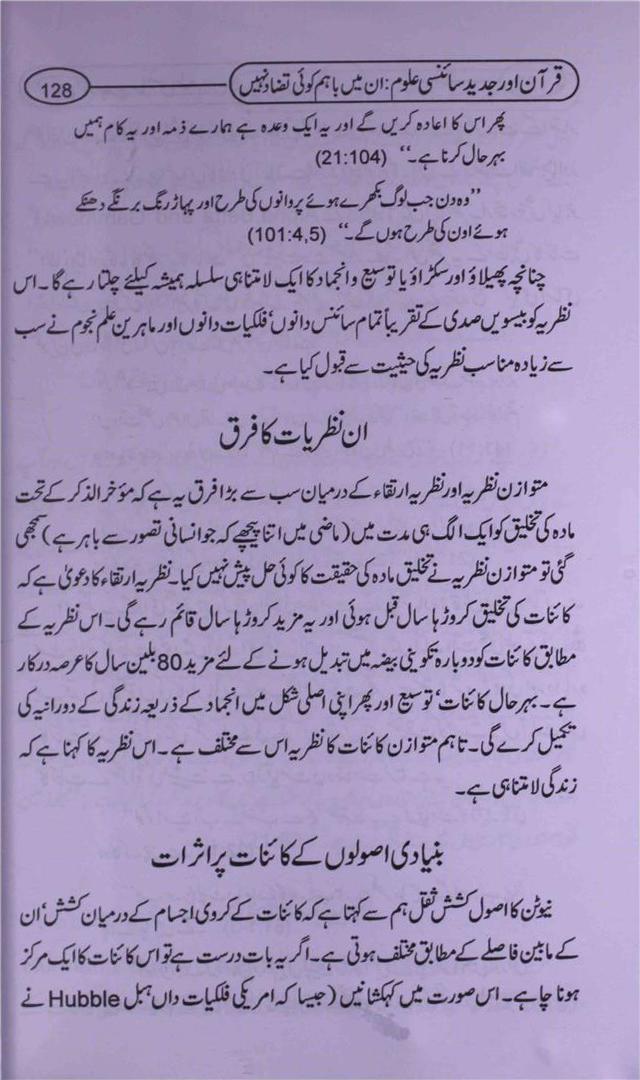 قرآن اور جدید سائنسی علوم: ان میں باہم کوئی تضاد نہیں
128
پھر اس کا اعادہ کریں گے اور یہ ایک وعدہ ہے ہمارے ذمہ اور یہ کام ہمیں
بہرحال کرنا ہے۔‘‘ (21:104)
’’وہ دن جب لوگ بکھرے ہوئے پروانوں کی طرح اور پہاڑ رنگ برنگے دھنکے
ہوئے اون کی طرح ہوں گے۔‘‘ (101:4,5)
چنانچہ پھیلاؤ اور سکڑاؤ یا توسیع و انجماد کا ایک لامتناہی سلسلہ ہمیشہ کیلئے چلتا رہے گا۔ اس
نظریہ کو بیسویں صدی کے تقریباً تمام سائنس دانوں‘ فلکیات دانوں اور ماہرین علم نجوم نے سب
سے زیادہ مناسب نظریہ کی حیثیت سے قبول کیا ہے۔
ان نظریات کا فرق
متوازن نظریہ اور نظریہ ارتقاء کے درمیان سب سے بڑا فرق یہ ہے کہ مؤخر الذکر کے تحت
مادہ کی تخلیق کو ایک الگ ہی مدت میں (ماضی میں اتنا پیچھے کہ جو انسانی تصور سے باہر ہے) سمجھی
گئی تو متوازن نظریہ نے تخلیق مادہ کی حقیقت کا کوئی حل پیش نہیں کیا۔ نظریہ ارتقاء کا دعویٰ ہے کہ
کائنات کی تخلیق کروڑہا سال قبل ہوئی اور یہ مزید کروڑہا سال قائم رہے گی۔ اس نظریہ کے
مطابق کائنات کو دوبارہ تکوینی بیضہ میں تبدیل ہونے کے لئے مزید 80 بلین سال کا عرصہ درکار
ہے۔ بہرحال کائنات‘ توسیع اور پھر اپنی اصلی شکل میں انجماد کے ذریعہ زندگی کے دورانیہ کی
تکمیل کرے گی۔ تاہم متوازن کائنات کا نظریہ اس سے مختلف ہے۔ اس نظریہ کا کہنا ہے کہ
زندگی لامتناہی ہے۔
بنیادی اصولوں کے کائنات پر اثرات
نیوٹن کا اصول کشش ثقل ہم سے کہتا ہے کہ کائنات کے کروی اجسام کے درمیان کشش‘ ان
کے مابین فاصلے کے مطابق مختلف ہوتی ہے۔ اگر یہ بات درست ہے تو اس کائنات کا ایک مرکز
ہونا چاہے۔ اس صورت میں کہکشانیں (جیسا کہ امریکی فلکیات داں ہبل Hubble نے